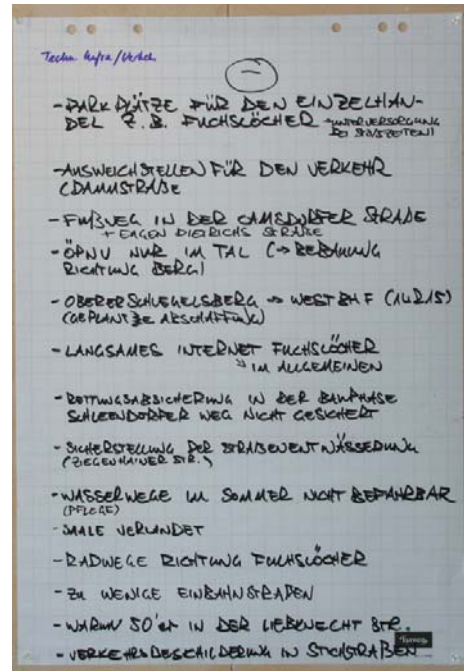 Techn. Infra/Verkeh.
-
- PARKPLÄTZE FÜR DEN EINZELHAN-
DEL Z.B. FUCHSLÖCHER → UNTERVERSORGUNG
BEI STOßZEITEN!
- AUSWEICHSTELLEN FÜR DEN VERKEHR
(DAMMSTRAßE
- FUßWEG IN DER CAMSDORFER STRAßE
+ EUGEN DIETRICHS STRAßE
- ÖPNV NUR IM TAL (→ BEBAUUNG
RICHTUNG BERG)
- OBERER SCHLEGELSBERG → WESTBHF (14 & 15)
(GEPLANTE ABSCHAFFUNG)
- LANGSAMES INTERNET FUCHSLÖCHER
IM ALLGEMEINEN
- RETTUNGSABSICHERUNG IN DER BAUPHASE
SCHLEENDORFER WEG NICHT GESICHERT
- SICHERSTELLUNG DER STRAßENENTWÄSSERUNG
(ZIEGENHAINER STR.)
- WASSERWEGE IM SOMMER NICHT BEFAHRBAR
(PFLEGE)
- SAALE VERLANDET
- RADWEGE RICHTUNG FUCHSLÖCHER
- ZU WENIGE EINBAHNSTRAßEN
- WARUM 50'er IN DER LIEBKNECHT STR.
- VERKEHRSBESCHILDERUNG IN STICHSTRAßEN